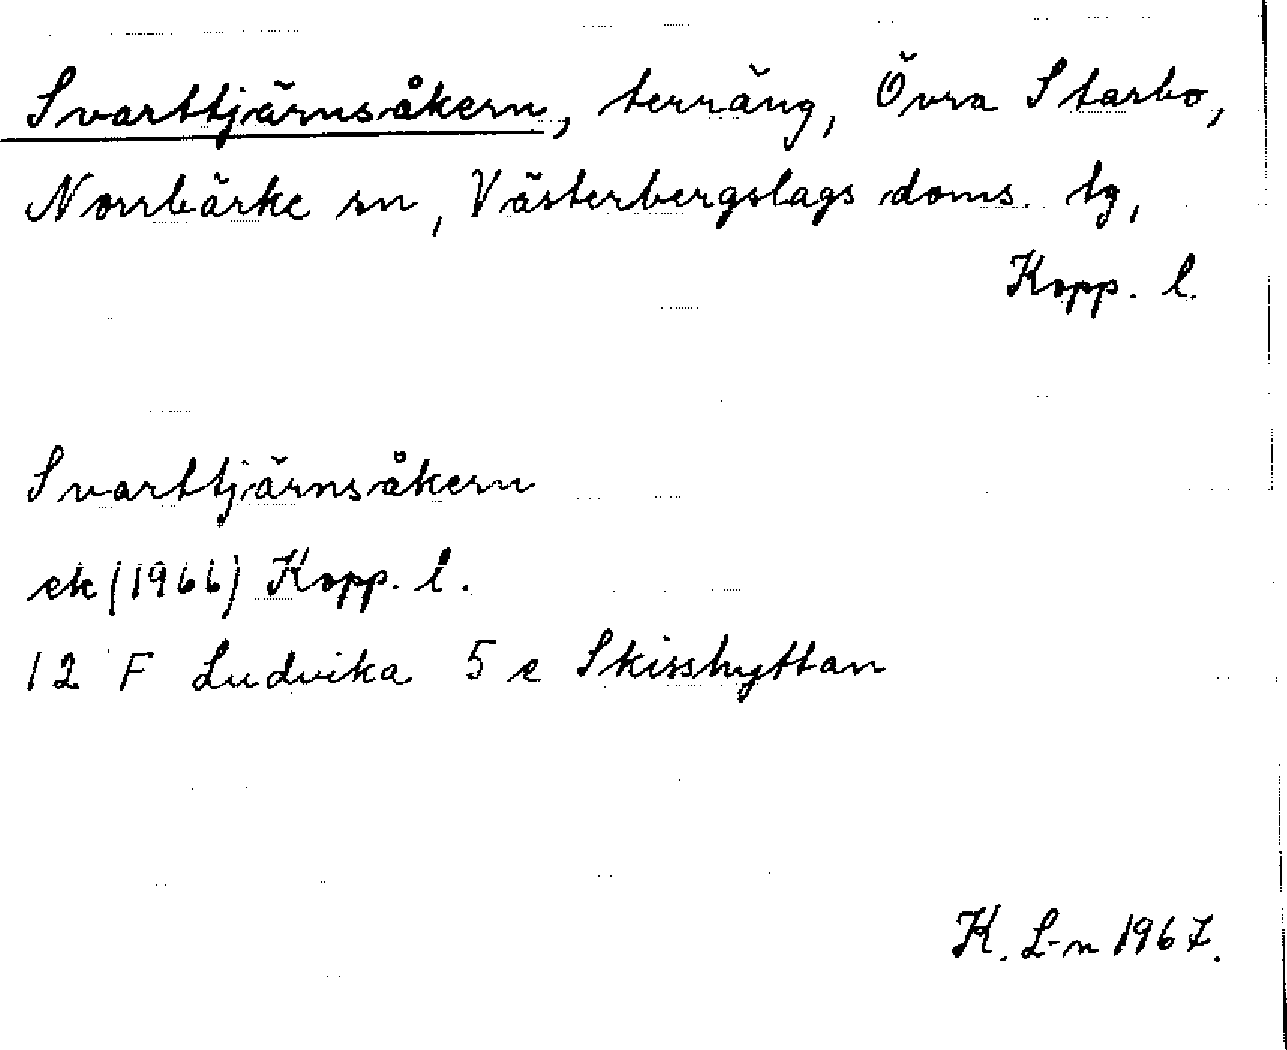 Svarttjärnsåkern, terräng, Övra Starbo,
Norrbärke sn, Västerbergslags doms. tg,
Kopp. l.
Svarttjärnsåkern
ek (1966) Kopp. l.
12 F Ludvika 5 e Skisshyttan
K. L-n 1967.